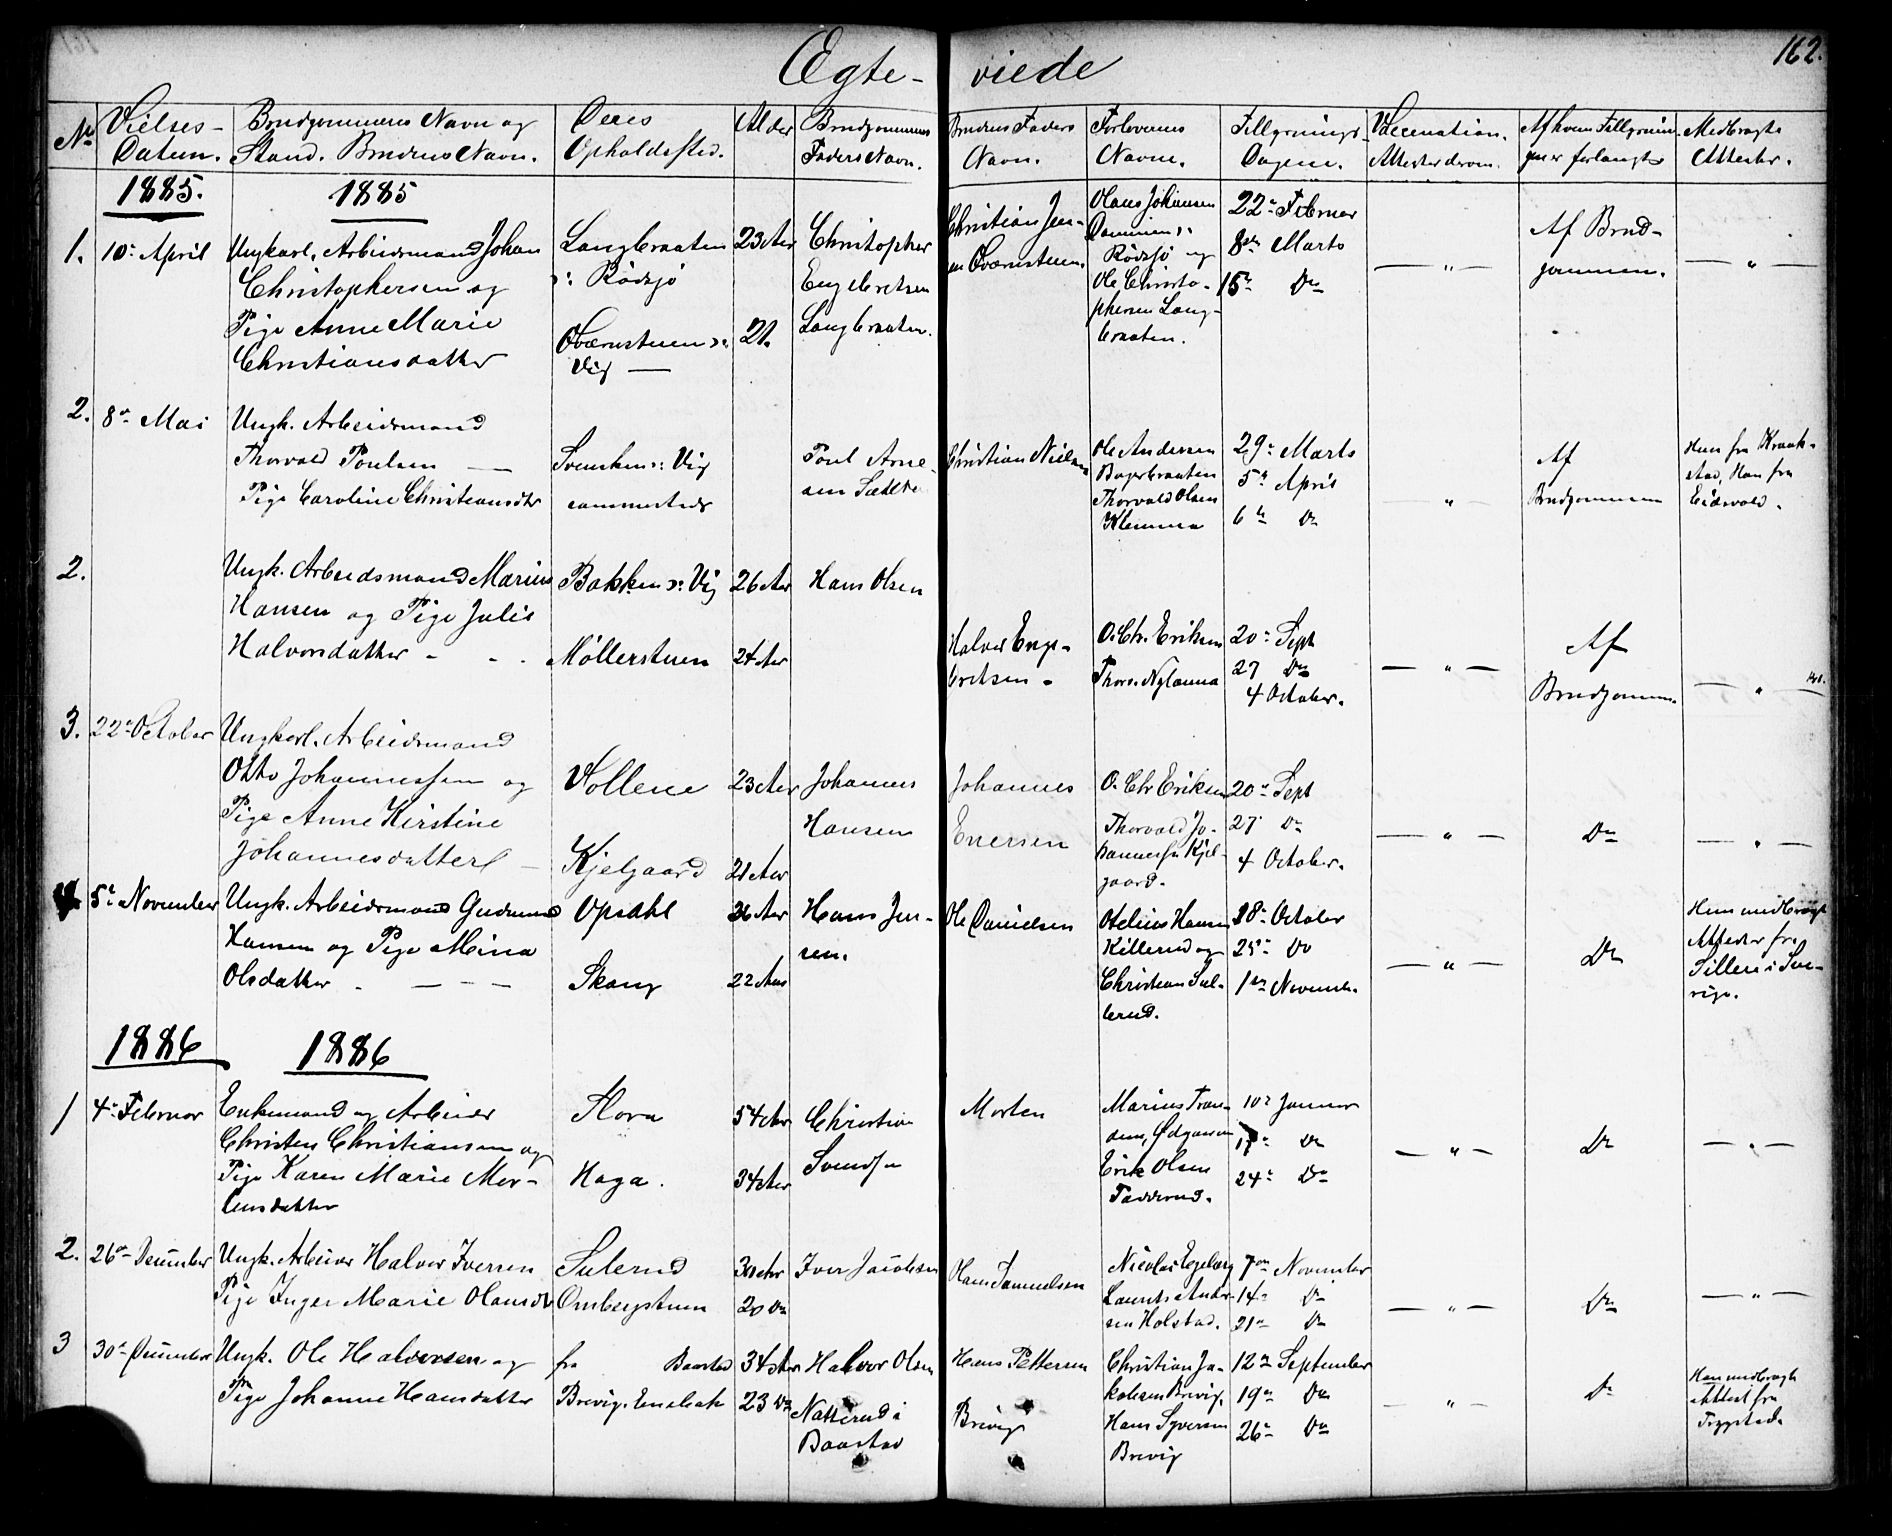 Ægte- viede
162.
No
Vielses-
Datum.
Brudgommens Navn og
Stand. Brudens Navn.
Deres
Opholdssted.
Alder
Brudgommens
Faders Navn.
Brudens Faders
Navn.
Forlovernes
Navne.
Tillysnings
Dagene.
Vaccination.
Attester derom.
Af hvem Tillysnin-
gen er forlangt
Medbragte
Attester.
1885. 1885
1. 10de April
Ungkarl. Arbeidsmand Johan
Christophersen og
Pige Anne Marie
Christiansdatter
Langbraaten
ɔ: Rødsjø
Oværnstuen ɔ:
Vig —
23 Aar
21.
Christopher
Engebretsen
Langbraaten.
Christian Jen-
sen Oværnstuen.
Olaus Johansen
Rødsjø og
Ole Christo-
phersen Lang-
braaten.
22de Februar
8de Marts
15de Do
— " —
Af Brud-
gommen.
— " —
2. 8de Mai
Ungk. Arbeidsmand
Thorvald Poulsen —
Pige Caroline Christiansdtr
Svensken ɔ: Vig
sammesteds
Poul Arne-
sen Sætre
Christian Nielsen
Ole Andersen
Bagerbraaten
Thorvald Olsen
Klemma
29de Marts
5te April
6te Do
"
Af
Brudgommen
Hun fra Kraak-
stad, Han fra
Eidsvold.
2.
Ungk. Arbeidsmand Marius
Hansen og Pige Julie
Halvorsdatter - - -
Bakken ɔ: Vig
Møllerstuen
26 Aar
24 Aar
Hans Olsen
Halvor Enge-
bretsen -
O. Chr. Eriksen
Thorv. Nylænna
20de Sept
27 Do
4 October.
— " —
Af
Brudgommen.
— " —
3. 22de October
Ungkarl. Arbeidsmand
Otto Johannessen og
Pige Anne Kirstine
Johannesdatter —
Vollene
Kjelgaard
23 Aar
21 Aar
Johannes
Hansen
Johannes
Enersen
O. Chr Eriksen
Thorvald Jo-
hannessen Kjel-
gaard.
20de Sept
27 Do
4 October.
— " —
Do
— " —
4 5te November
Ungk. Arbeidsmand Gudmund
Hansen og Pige Mina
Olsdatter - — — —
Opsahl
Skaug
26 Aar
22 Aar
Hans Jen-
sen.
Ole Danielsen
Otelius Hansen
Killerud og
Christian Sul-
lerud.
18de October
25de Do
1ste Novemb.
— " —
Do
Hun medbragt
Attester fra
Sillen i Sve-
rige.
1886 1886
1 4de Februar
Enkemand og Arbeider
Christen Christiansen og
Pige Karen Marie Mor-
tensdatter
Flora
Haga.
54 Aar
34 Aar
Christian
Svendsen
Morten
Marius Tran-
dem, Ødgaarden
Erik Olsen
Tadderud.
10de Januar
17de Do
24de Do
— " —
Do
— " —
2. 26de December
Ungk. Arbeider Halvor Iversen
Pige Inger Marie Olausdt
Sulerud
Ombergstuen
30 Aar
20 Do
Iver Jacobsen
Olaus Samuelsen
Nicolai Egeberg
Laurits Ander-
sen Holstad.
7de November
14de Do
21de Do
— " —
Do
— " —
3 30de December
Ungk. Ole Halvorsen og
Pige Johanne Hansdatter
fra Baastad
Brevig. Enebak
34 Aar
23 Do
Halvor Olsen
Natterud i
Baastad
Hans Pettersen
Brevig
Christian Ja-
kobsen Brevig.
Hans Syversen
Brevig
12te September
19de Do
26de Do
— " —
Do
Han medbragt
Attest fra
Trygstad.